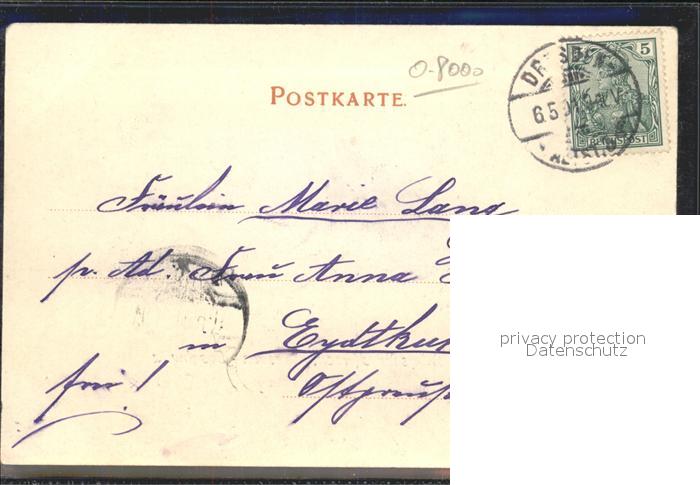 0-8000
POSTKARTE.
DRESDEN
6.5.
5
REICHSPOST
Fräulein Marie Lang
pr. Ad. Frau Anna
in Eydtku
frei! Ostpreuß
privacy protection
Datenschutz